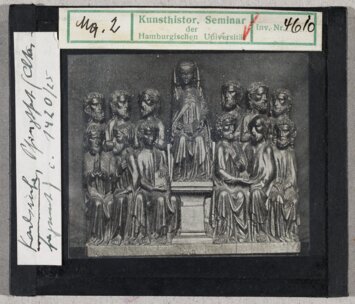 Mg. 2
Kunsthistor. Seminar
der
Hamburgischen Universität
Inv. Nr. 4610
Karlsruhe,
c. 1420/25